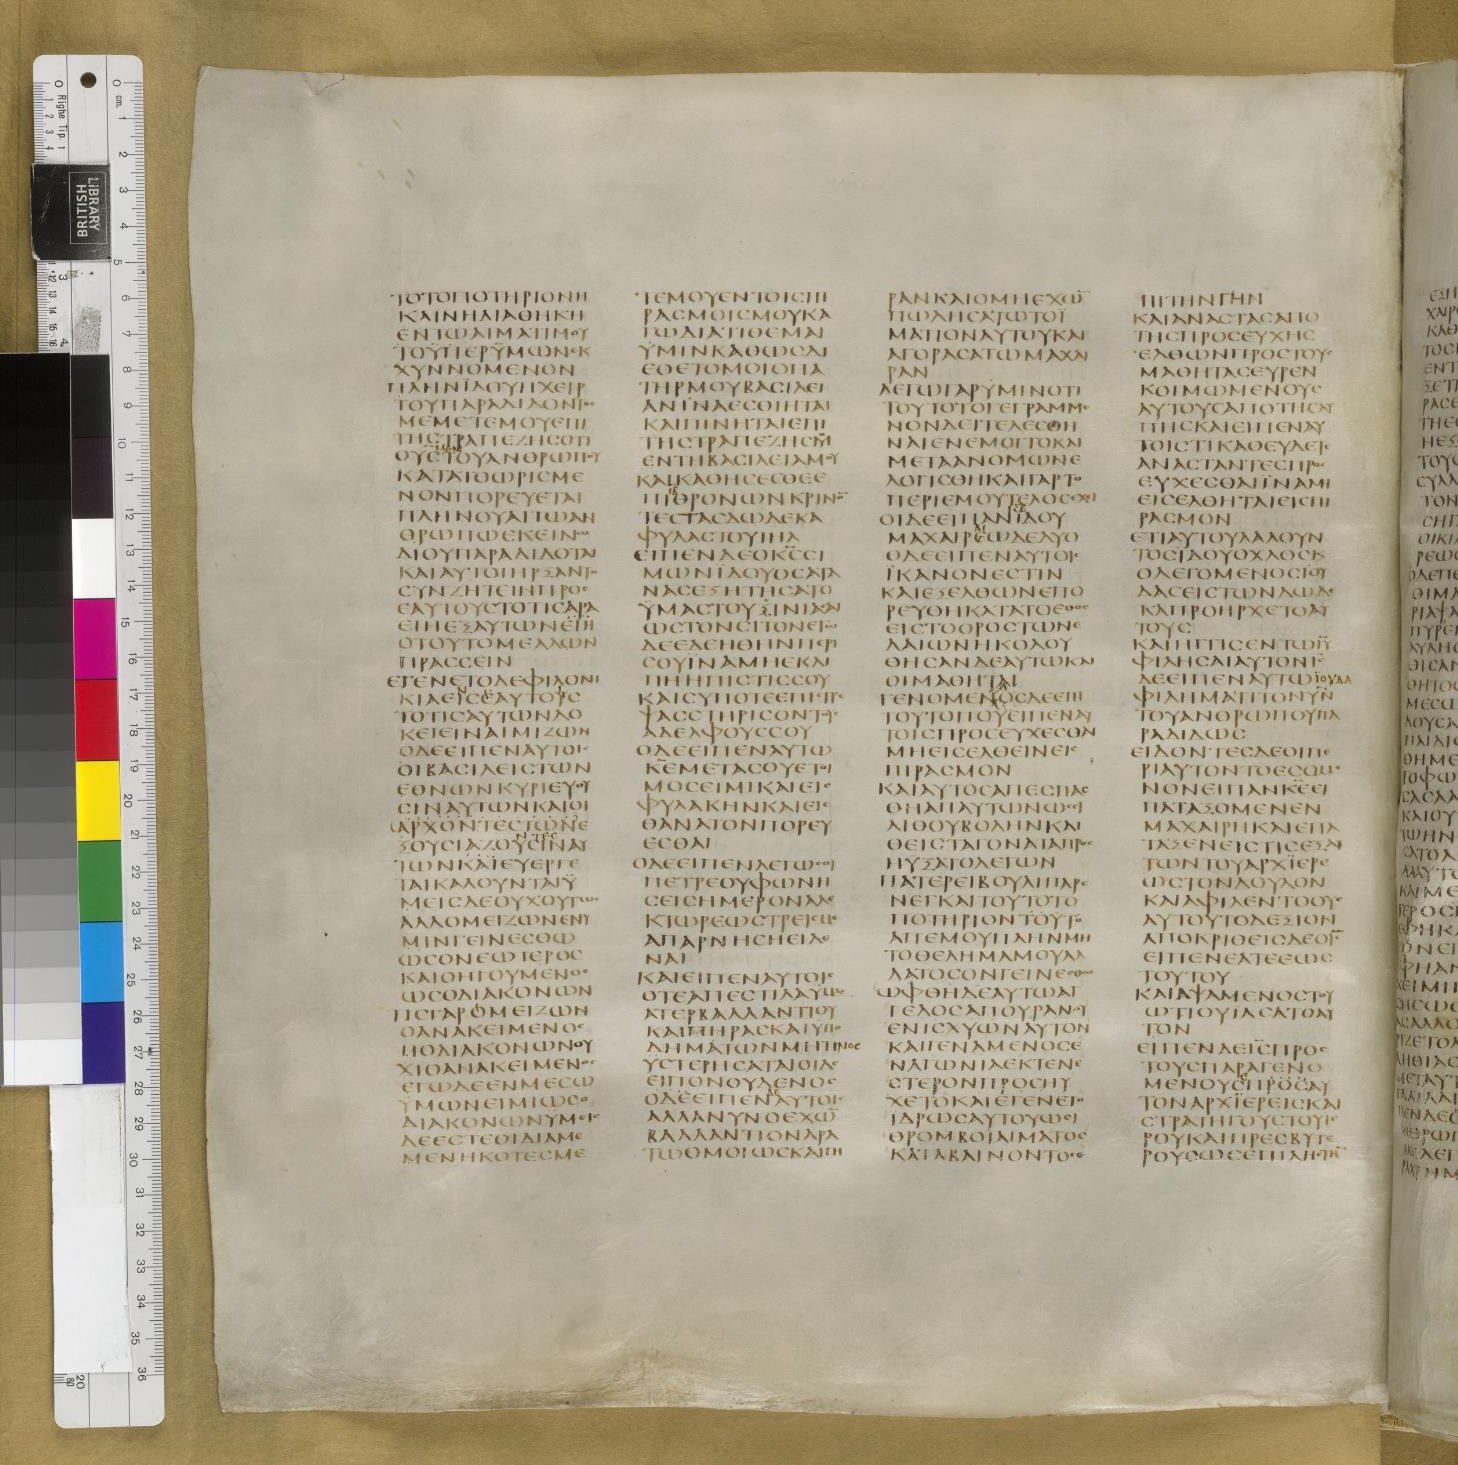 ΤΟΤΟΠΟΤΗΡΙΟΝΗ
ΚΑΙΝΗΔΙΑΘΗΚΗ
ΕΝΤΩΑΙΜΑΤΙΜΟΥ
ΤΟΫΠΕΡΫΜΩΝΕΚ
ΧΥΝΝΟΜΕΝΟΝ
ΠΛΗΝΪΔΟΥΗΧΕΙΡ
ΤΟΥΠΑΡΑΔΙΔΟΝΤΟΣ
ΜΕΜΕΤΕΜΟΥΕΠΙ
ΤΗΣΤΡΑΠΕΖΗΣΟΤΙ
ΟΥΣΤΟΥΑΝΘΡΩΠΟΥ
ΚΑΤΑΤΟΩΡΙΣΜΕ
ΝΟΝΠΟΡΕΥΕΤΑΙ
ΠΛΗΝΟΥΑΙΤΩΑΝ
ΘΡΩΠΩΕΚΕΙΝΩ
ΔΙΟΥΠΑΡΑΔΙΔΟΤΑΙ
ΚΑΙΑΥΤΟΙΗΡΞΑΝΤΟ
ΣΥΝΖΗΤΕΙΝΠΡΟΣ
ΕΑΥΤΟΥΣΤΟΤΙΣΑΡΑ
ΕΙΗΕΞΑΥΤΩΝΕΙΗ
ΟΤΟΥΤΟΜΕΛΛΩΝ
ΠΡΑΣΣΕΙΝ
ΕΓΕΝΕΤΟΔΕΦΙΛΟΝΙ
ΚΙΑΕΙΣΕΑΥΤΟΥΣ
ΤΟΤΙΣΑΥΤΩΝΔΟ
ΚΕΙΕΙΝΑΙΜΙΖΩΝ
ΟΔΕΕΙΠΕΝΑΥΤΟΙΣ
ΟΙΒΑΣΙΛΕΙΣΤΩΝ
ΕΘΝΩΝΚΥΡΙΕΥΟΥ
ΣΙΝΑΥΤΩΝΚΑΙΟΙ
ΑΡΧΟΝΤΕΣΤΩΝΕ
ΞΟΥΣΙΑΖΟΥΣΙΝΑΥ
ΤΩΝΚΑΙΕΥΕΡΓΕ
ΤΑΙΚΑΛΟΥΝΤΑΙΫ
ΜΕΙΣΔΕΟΥΧΟΥΤΩΣ
ΑΛΛΟΜΕΙΖΩΝΕΝΥ
ΜΙΝΓΕΙΝΕΣΘΩ
ΩΣΟΝΕΩΤΕΡΟΣ
ΚΑΙΟΗΓΟΥΜΕΝΟΣ
ΩΣΟΔΙΑΚΟΝΩΝ
ΤΙΣΓΑΡΟΜΕΙΖΩΝ
ΟΑΝΑΚΕΙΜΕΝΟΣ
ΗΟΔΙΑΚΟΝΩΝΟΥ
ΧΙΟΑΝΑΚΕΙΜΕΝΟΣ
ΕΓΩΔΕΕΝΜΕΣΩ
ΫΜΩΝΕΙΜΙΩΣΟ
ΔΙΑΚΟΝΩΝΥΜΕΙΣ
ΔΕΕΣΤΕΟΙΔΙΑΜΕ
ΜΕΝΗΚΟΤΕΣΜΕ
ΤΕΜΟΥΕΝΤΟΙΣΠΙ
ΡΑΣΜΟΙΣΜΟΥΚΑ
ΓΩΔΙΑΤΙΘΕΜΑΙ
ΫΜΙΝΚΑΘΩΣΔΙ
ΕΘΕΤΟΜΟΙΟΠΑ
ΤΗΡΜΟΥΒΑΣΙΛΕΙ
ΑΝΪΝΑΕΣΘΙΗΤΑΙ
ΚΑΙΠΙΝΗΤΑΙΕΠΙ
ΤΗΣΤΡΑΠΕΖΗΣΜ
ΕΝΤΗΒΑΣΙΛΕΙΑΜΟΥ
ΚΑΙΚΑΘΗΣΕΣΘΕΕ
ΠΙΘΡΟΝΩΝΚΡΙΝΟ
ΤΕΣΤΑΣΔΩΔΕΚΑ
ΦΥΛΑΣΤΟΥΙΗΛ
ΕΙΠΕΝΔΕΟΚΣΣΙ
ΜΩΝΪΔΟΥΟΣΑΤΑ
ΝΑΣΕΞΗΤΗΣΑΤΟ
ΫΜΑΣΤΟΥΣΙΝΙΑΣΑΙ
ΩΣΤΟΝΣΙΤΟΝΕΓΩ
ΔΕΕΔΕΗΘΗΝΠΕΡΙ
ΣΟΥΪΝΑΜΗΕΚΛΙ
ΠΗΗΠΙΣΤΙΣΣΟΥ
ΚΑΙΣΥΠΟΤΕΕΠΙΣΤΡΕ
ΨΑΣΣΤΗΡΙΣΟΝΤΟΥΣ
ΑΔΕΛΦΟΥΣΣΟΥ
ΟΔΕΕΙΠΕΝΑΥΤΩ
ΚΕΜΕΤΑΣΟΥΕΤΟΙ
ΜΟΣΕΙΜΙΚΑΙΕΙΣ
ΦΥΛΑΚΗΝΚΑΙΕΙΣ
ΘΑΝΑΤΟΝΠΟΡΕΥ
ΕΣΘΑΙ
ΟΔΕΕΙΠΕΝΛΕΓΩΣΟΙ
ΠΕΤΡΕΟΥΦΩΝΗ
ΣΕΙΣΗΜΕΡΟΝΑΛΕ
ΚΤΩΡΕΩΣΤΡΕΙΣΜΕ
ΑΠΑΡΝΗΣΗΕΙΔΕ
ΝΑΙ
ΚΑΙΕΙΠΕΝΑΥΤΟΙΣ
ΟΤΕΑΠΕΣΤΙΛΑΫΜΑΣ
ΑΤΕΡΒΑΛΛΑΝΤΙΟΥ
ΚΑΙΠΗΡΑΣΚΑΙΥΠΟ
ΔΗΜΑΤΩΝΜΗΤΙΝΟΣ
ΥΣΤΕΡΗΣΑΤΑΙΟΙΔΕ
ΕΙΠΟΝΟΥΔΕΝΟΣ
ΟΔΕΕΙΠΕΝΑΥΤΟΙΣ
ΑΛΛΑΝΥΝΟΕΧΩ
ΒΑΛΛΑΝΤΙΟΝΑΡΑ
ΤΩΟΜΟΙΩΣΚΑΙΠΗ
ΡΑΝΚΑΙΟΜΗΕΧΩ
ΠΩΛΗΣΑΤΩΤΟΪ
ΜΑΤΙΟΝΑΥΤΟΥΚΑΙ
ΑΓΟΡΑΣΑΤΩΜΑΧΑΙ
ΡΑΝ
ΛΕΓΩΓΑΡΫΜΙΝΟΤΙ
ΤΟΥΤΟΤΟΓΕΓΡΑΜΜΕ
ΝΟΝΔΕΙΤΕΛΕΣΘΗ
ΝΑΙΕΝΕΜΟΙΤΟΚΑΙ
ΜΕΤΑΑΝΟΜΩΝΕ
ΛΟΓΙΣΘΗΚΑΙΓΑΡΤΟ
ΠΕΡΙΕΜΟΥΤΕΛΟΣΕΧΕΙ
ΟΙΔΕΕΙΠΑΝΪΔΟΥ
ΜΑΧΑΙΡΕΩΔΕΔΥΟ
ΟΔΕΕΙΠΕΝΑΥΤΟΙΣ
ΪΚΑΝΟΝΕΣΤΙΝ
ΚΑΙΕΞΕΛΘΩΝΕΠΟ
ΡΕΥΘΗΚΑΤΑΤΟΕΘΟΣ
ΕΙΣΤΟΟΡΟΣΤΩΝΕ
ΛΑΙΩΝΗΚΟΛΟΥ
ΘΗΣΑΝΔΕΑΥΤΩΚΑΙ
ΟΙΜΑΘΗΤΑΙ
ΓΕΝΟΜΕΝΟΣΔΕΕΠΙ
ΤΟΥΤΟΠΟΥΕΙΠΕΝΑΥ
ΤΟΙΣΠΡΟΣΕΥΧΕΣΘΑΙ
ΜΗΕΙΣΕΛΘΕΙΝΕΙΣ
ΠΙΡΑΣΜΟΝ
ΚΑΙΑΥΤΟΣΑΠΕΣΠΑΣ
ΘΗΑΠΑΥΤΩΝΩΣΙ
ΛΙΘΟΥΒΟΛΗΝΚΑΙ
ΘΕΙΣΤΑΓΟΝΑΤΑΠΡΟΣ
ΗΥΞΑΤΟΛΕΓΩΝ
ΠΑΤΕΡΕΙΒΟΥΛΙΠΑΡΕ
ΝΕΓΚΑΙΤΟΥΤΟΤΟ
ΠΟΤΗΡΙΟΝΤΟΥΤΟ
ΑΠΕΜΟΥΠΛΗΝΜΗ
ΤΟΘΕΛΗΜΑΜΟΥΑΛ
ΛΑΤΟΣΟΝΓΕΙΝΕΣΘΩ
ΩΦΘΗΔΕΑΥΤΩΑΓ
ΓΕΛΟΣΑΠΟΥΡΑΝΟΥ
ΕΝΙΣΧΥΩΝΑΥΤΟΝ
ΚΑΙΓΕΝΑΜΕΝΟΣΕ
ΝΑΓΩΝΙΑΕΚΤΕΝΕ
ΣΤΕΡΟΝΠΡΟΣΗΥ
ΧΕΤΟΚΑΙΕΓΕΝΕΤΟ
ΪΔΡΩΣΑΥΤΟΥΩΣΙ
ΘΡΟΜΒΟΙΑΙΜΑΤΟΣ
ΚΑΤΑΒΑΙΝΟΝΤΟΣ
ΠΙΤΗΝΓΗΝ
ΚΑΙΑΝΑΣΤΑΣΑΠΟ
ΤΗΣΠΡΟΣΕΥΧΗΣ
ΕΛΘΩΝΠΡΟΣΤΟΥΣ
ΜΑΘΗΤΑΣΕΥΡΕΝ
ΚΟΙΜΩΜΕΝΟΥΣ
ΑΥΤΟΥΣΑΠΟΤΗΣΛΥ
ΠΗΣΚΑΙΕΙΠΕΝΑΥ
ΤΟΙΣΤΙΚΑΘΕΥΔΕΤΕ
ΑΝΑΣΤΑΝΤΕΣΠΡΟΣ
ΕΥΧΕΣΘΑΙΪΝΑΜΙ
ΕΙΣΕΛΘΗΤΑΙΕΙΣΠΙ
ΡΑΣΜΟΝ
ΕΤΙΑΥΤΟΥΛΑΛΟΥΝ
ΤΟΣΙΔΟΥΟΧΛΟΣΚ
ΟΛΕΓΟΜΕΝΟΣΪΟΥ
ΔΑΣΕΙΣΤΩΝΔΩΔΕ
ΚΑΠΡΟΗΡΧΕΤΟΑΥ
ΤΟΥΣ
ΚΑΙΗΓΓΙΣΕΝΤΩΙΥ
ΦΙΛΗΣΑΙΑΥΤΟΝΙΣ
ΔΕΕΙΠΕΝΑΥΤΩΙΟΥΔΑ
ΦΙΛΗΜΑΤΙΤΟΝΥΝ
ΤΟΥΑΝΘΡΩΠΟΥΠΑ
ΡΑΔΙΔΩΣ
ΕΙΔΟΝΤΕΣΔΕΟΙΠΕ
ΡΙΑΥΤΟΝΤΟΕΣΟΜΕ
ΝΟΝΕΙΠΑΝΚΕΕΙ
ΠΑΤΑΞΟΜΕΝΕΝ
ΜΑΧΑΙΡΗΚΑΙΕΠΑ
ΤΑΞΕΝΕΙΣΤΙΣΕΞΑΥ
ΤΩΝΤΟΥΑΡΧΪΕΡΕ
ΩΣΤΟΝΔΟΥΛΟΝ
ΚΑΙΑΦΙΛΕΝΤΟΟΥΣ
ΑΥΤΟΥΤΟΔΕΞΙΟΝ
ΑΠΟΚΡΙΘΕΙΣΔΕΟΙΣ
ΕΙΠΕΝΕΑΤΕΕΩΣ
ΤΟΥΤΟΥ
ΚΑΙΑΨΑΜΕΝΟΣΤΟΥ
ΩΤΙΟΥΙΑΣΑΤΟΑΥ
ΤΟΝ
ΕΙΠΕΝΔΕΙΣΠΡΟΣ
ΤΟΥΣΠΑΡΑΓΕΝΟ
ΜΕΝΟΥΣΠΡΟΣΑΥ
ΤΟΝΑΡΧΪΕΡΕΙΣΚΑΙ
ΣΤΡΑΤΗΓΟΥΣΤΟΥΙΕ
ΡΟΥΚΑΙΠΡΕΣΒΥΤΕ
ΡΟΥΣΩΣΕΠΙΛΗΣΤΗ
LIBRARY
BRITISH